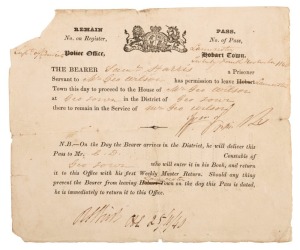 REMAIN PASS.
No. on Register, No. of Pass,
Police Office, Hobart Town,
THE BEARER a Prisoner
Servant to Mr Geo Wilson has permission to leave Hobart
Town this day to proceed to the House of Mr Geo Wilson
at Geo Town in the District of Geo Town
there to remain in the Service of Mr Geo Wilson
N.B.—On the Day the Bearer arrives in the District, he will deliver this
Pass to Mr. Constable of
Geo Town who will enter it in his Book, and return
it to this Office with his first Weekly Master Return. Should any thing
prevent the Bearer from leaving Hobart Town on the day this Pass is dated,
he is immediately to return it to this Office.